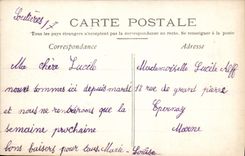 Loutières /5
CARTE POSTALE
Tous les pays étrangers n'acceptent pas la correspondance au recto. Se renseigner à la poste
Correspondance
Adresse
Ma chère Lucile
nous sommes ici depuis mardi
et nous ne rentrerons que la
semaine prochaine
bons baisers pour tous Marie-Louise
Mademoiselle Lucile
12 rue de grand pierre
Epernay
Marne